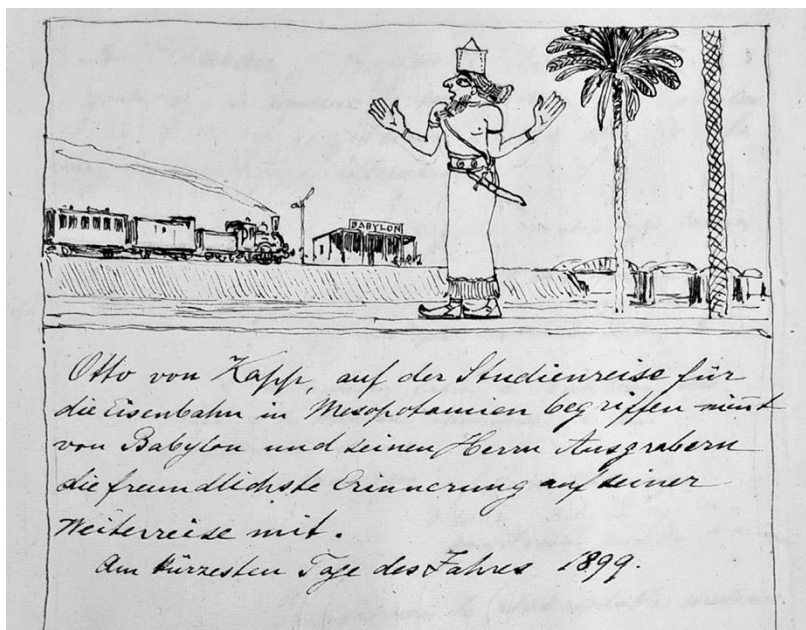 BABYLON
Otto von Kapp, auf der Studienreise für
die Eisenbahn in Mesopotamien begriffen nimt
von Babylon und seinen Herrn Ausgrabern
die freundlichste Erinnerung auf seiner
Weiterreise mit.
Am kürzesten Tage des Jahres 1899.